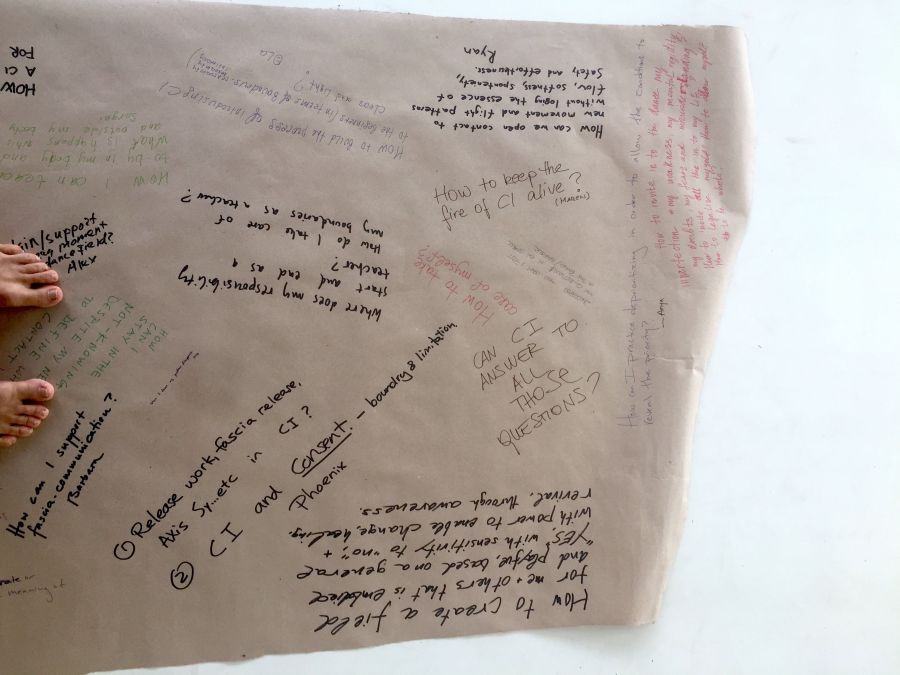 HOW
A CI
FOR
How can we open contact to
new movement and flight patterns
without losing the essence of
flow, softness, spontaneity,
Safety and effortlessness.
Ryan
How to build the process of introducing CI
to the beginners (in terms of boundaries
clear and light?
OLA
How I can
to by in my body and
what is happens
and outside my body
Sergei
How to keep the
fire of CI alive?
Where does my responsibility
start and end as a
teacher?
How do I take care of
my boundaries as a teacher?
How to take
care of
myself?
CAN CI
ANSWER TO
ALL
THOSE
QUESTIONS?
How can I practice deprioritizing in order to allow the conditions to
reveal the priority?
Anya
How to invite in to the dance my
imperfection & my weakness, my mental rigidity,
my doubts, my fears and misunderstanding?
How to invite all the in to my life
/support
moment
field?
Alex
HOW
CAN I
STAY
IN THE
NOT-KNOWING
DESPITE MY
TO
DEFINE
CONTACT
How can I support
fascia-communication?
Barbara
① Release work, fascia release,
Axis Sy...etc in CI?
② CI and Consent. - boundry & limitation
Phoenix
How to create a field
for me + others that is embodied
and playful, based on a general
"YES" with sensitivity to "no", +
with power to enable change, healing,
revival, through awareness.
meaning of